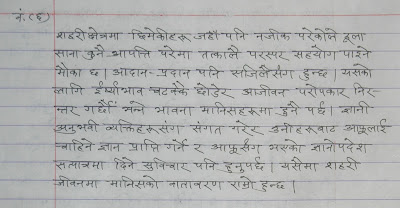 नं. (६)
शहरी क्षेत्रमा छिमेकीहरू जहाँ पनि नजीक परेकोले ठूला
साना कुनै आपत्ति परेमा तत्कालै परस्पर सहयोग पाइने
मौका छ । आदान-प्रदान पनि सजिलैसंग हुन्छ । यसको
लागि ईर्ष्याभाव चटक्कै छोडेर आजीवन परोपकार निर-
न्तर गर्छौं भन्ने भावना मानिसहरूमा हुनै पर्छ । ज्ञानी
अनुभवी व्यक्तिहरूसंग संगत गरेर उनीहरूबाट आफूलाई
चाहिने ज्ञान प्राप्ति गर्ने र आफूसँग भएको ज्ञानोपदेश
सत्पात्रमा दिने सुविचार पनि हुनुपर्छ । यसैमा शहरी
जीवनमा मानिसको वातावरण राम्रो हुन्छ ।